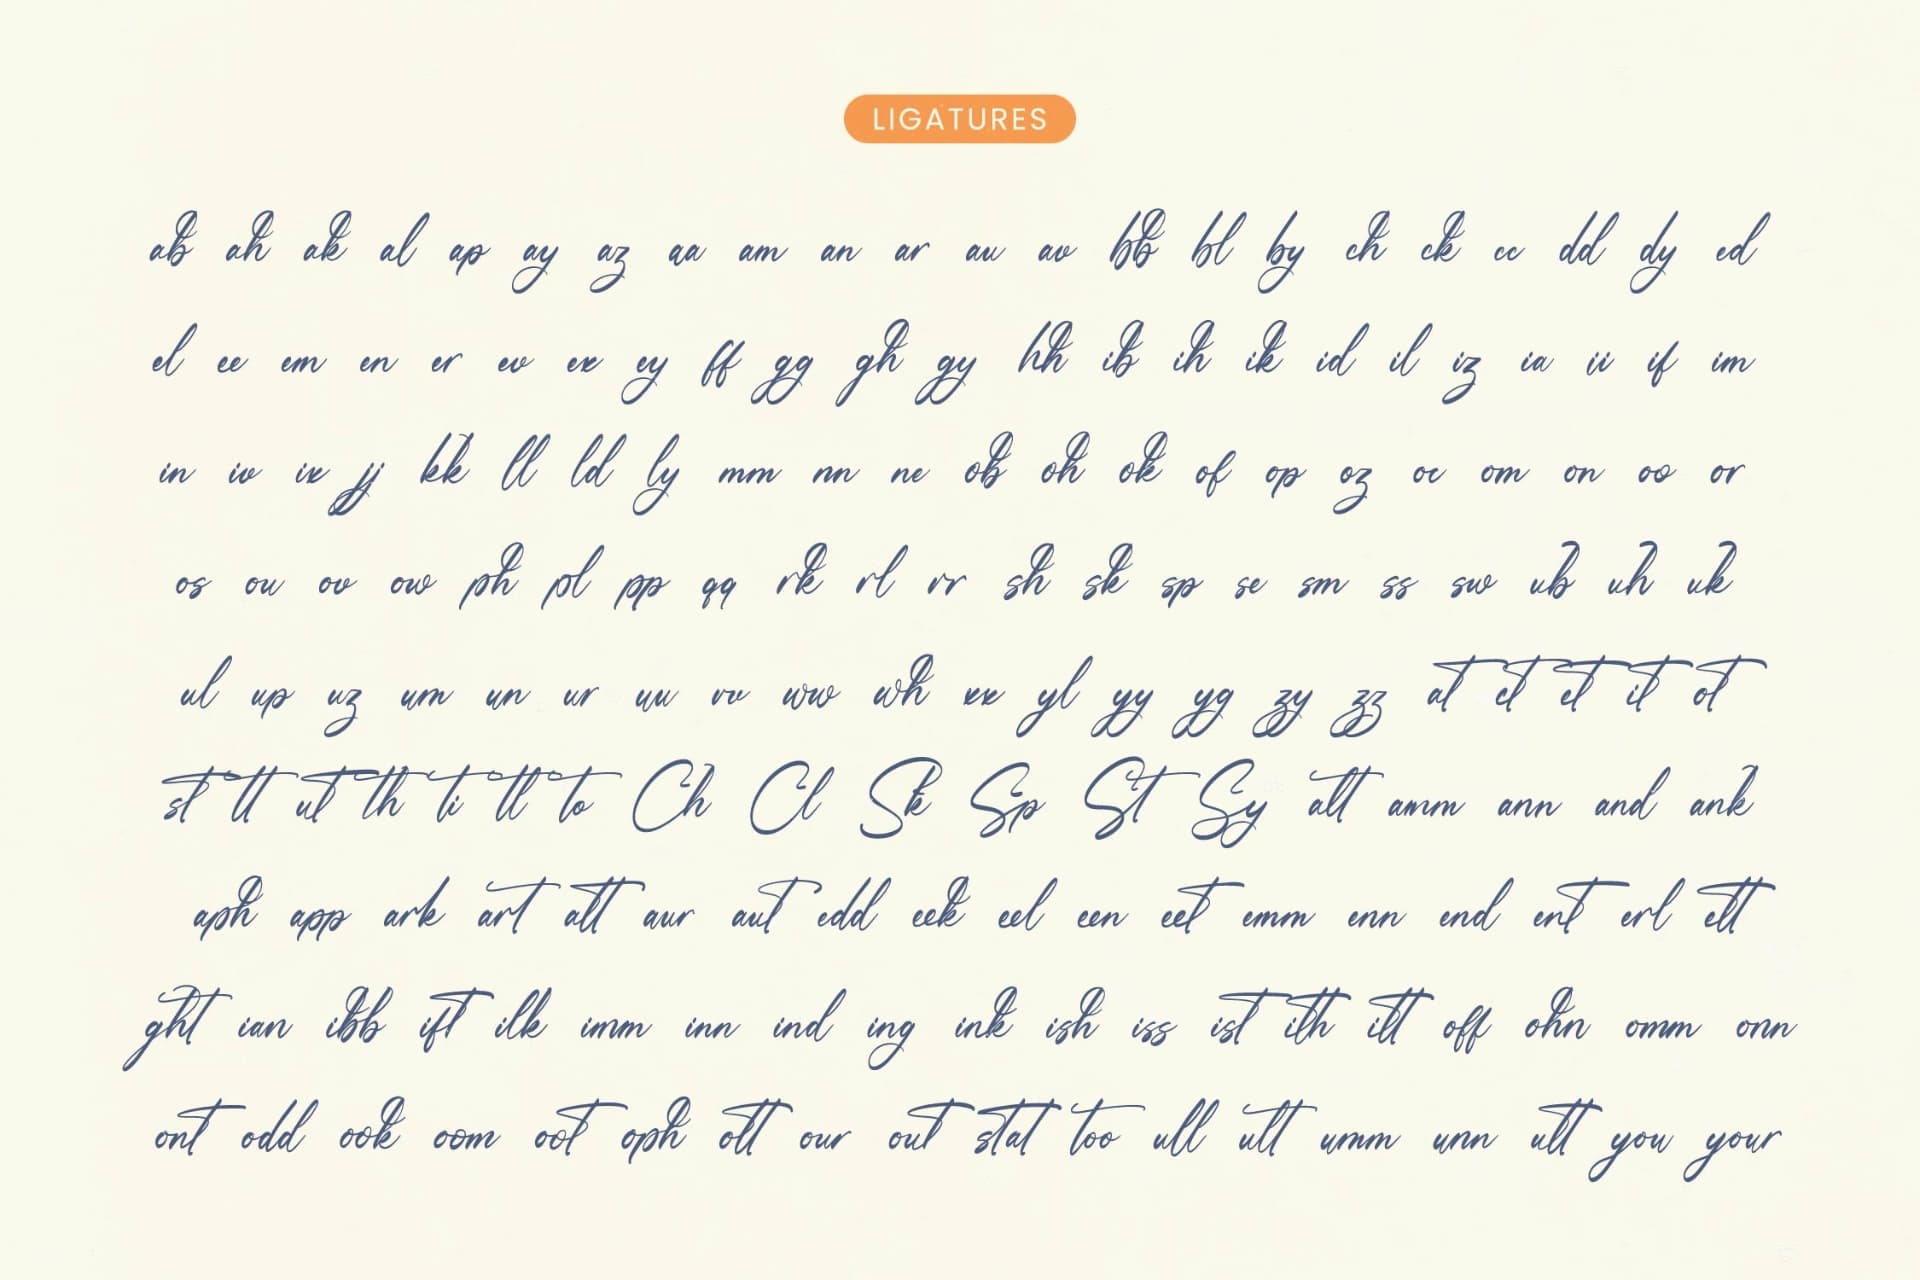 LIGATURES
ab ah ak al ap ay az aa am an ar au av bb bl by ch ck cc dd dy ed
el ee em en er ev ex ey ff gg gh gy hh ib ih ik id il iz ia ii if im
in iv ix jj kk ll ld ly mm nn ne ob oh ok of op oz oc om on oo or
os ou ov ow ph pl pp qq rk rl rr sh sk sp se sm ss sw ub uh uk
ul up uz um un ur uu vv ww wh xx yl yy yg zy zz at ct et it ot
st tt ut th ti tl to Ch Cl Sk Sp St Sy alt amm ann and ank
aph app ark art att aur aut edd eek eel een eet emm enn end ent erl ett
ght ian ibb ift ilk imm inn ind ing ink ish iss ist ith itt off ohn omm onn
ont odd ook oom oot oph ott our out stat too ull ult umm unn utt you your